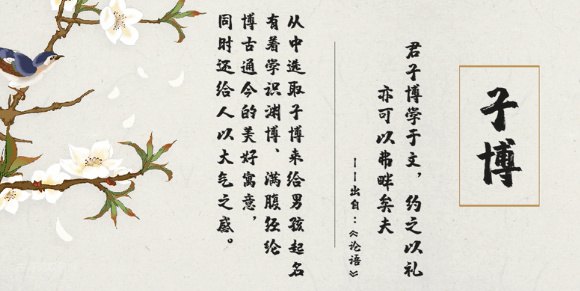 子博
君子博学于文，约之以礼
亦可以弗畔矣夫
——出自：《论语》
从中选取子博来给男孩起名
有着学识渊博、满腹经纶
博古通今的美好寓意，
同时还给人以大气之感。